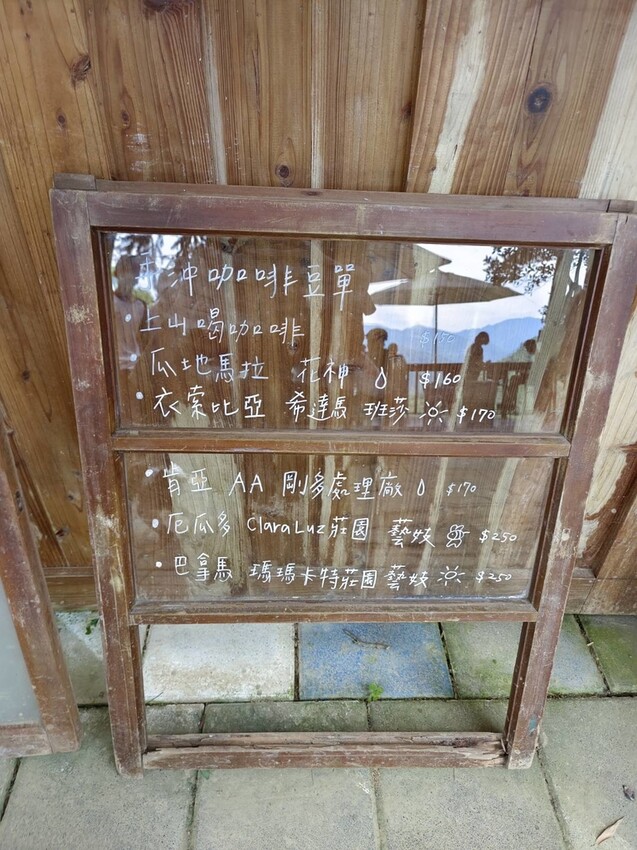 手沖咖啡豆單
• 上山喝咖啡 $150
• 瓜地馬拉 花神 $160
• 衣索比亞 希達馬 班莎 $170
• 肯亞 AA 剛多處理廠 $170
• 厄瓜多 Clara Luz莊園 藝妓 $250
• 巴拿馬 瑪瑪卡特莊園 藝妓 $250